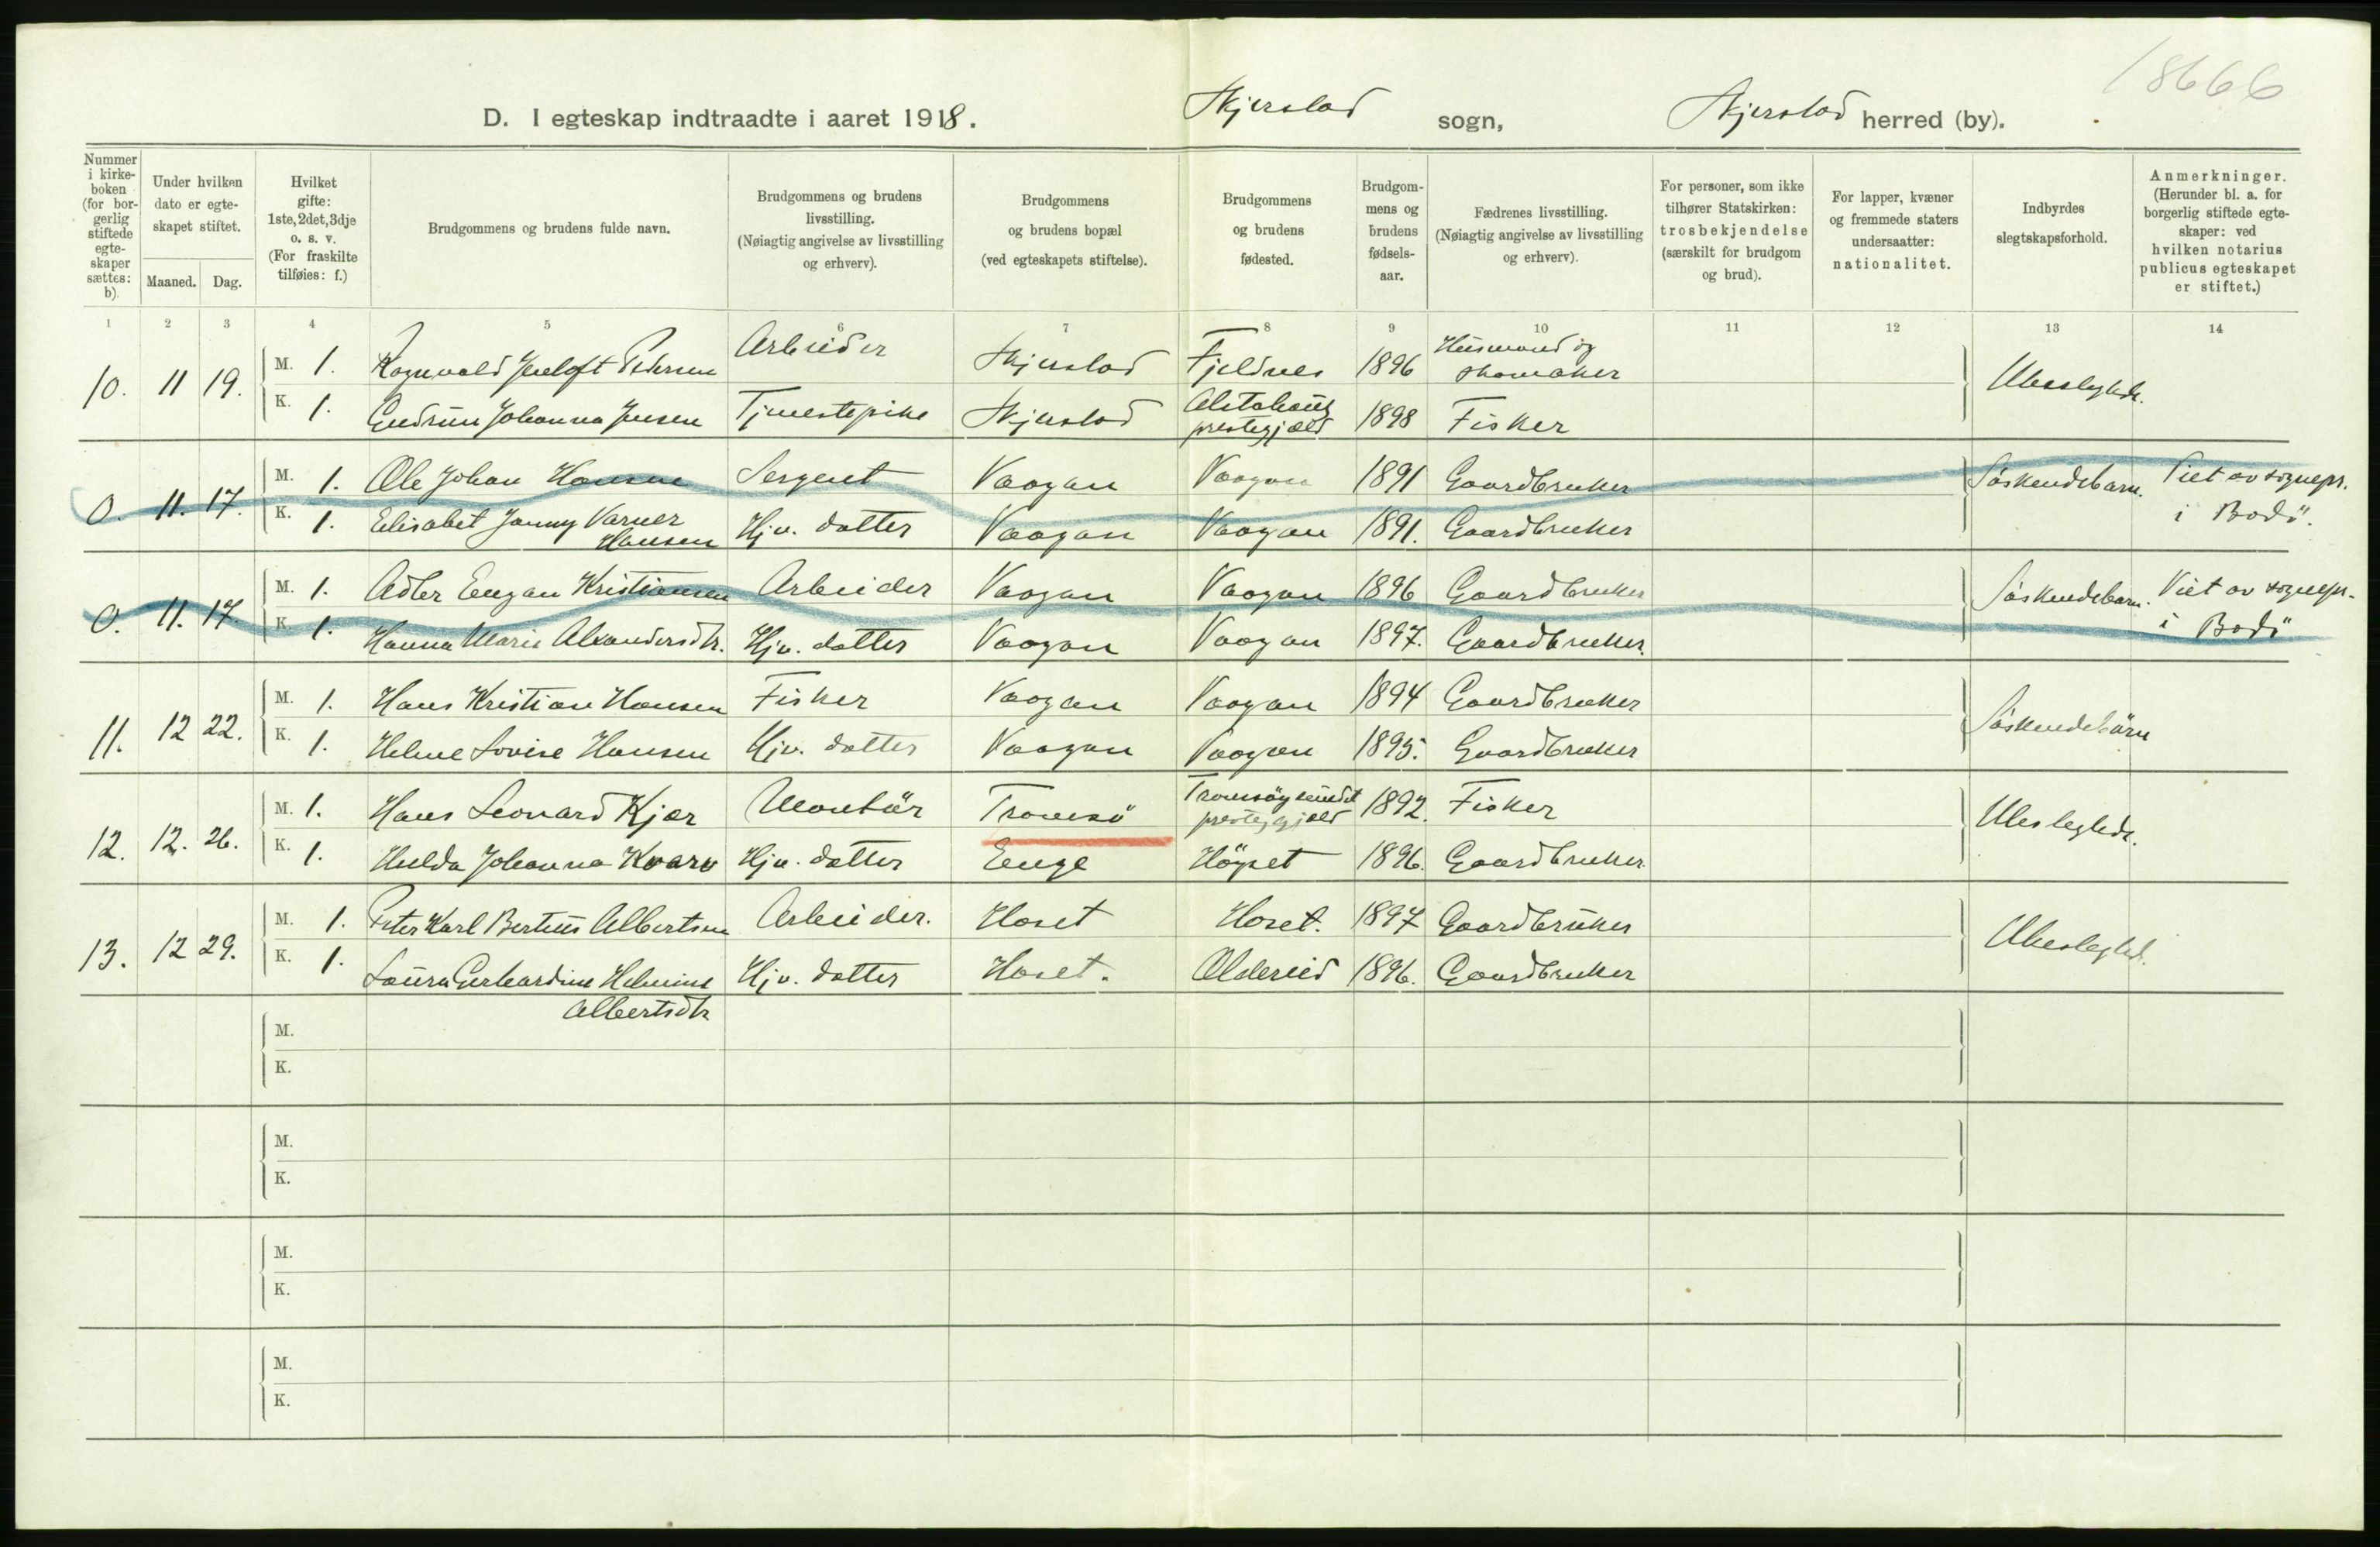 18666
D. I egteskap indtraadte i aaret 1918. Skjerstad sogn, Skjerstad herred (by).
Nummer i kirke-boken (for bor-gerlig stiftede egte-skaper sættes: b).
Under hvilken dato er egte-skapet stiftet.
Maaned. Dag.
Hvilket gifte: 1ste, 2det, 3dje o. s. v. (For fraskilte tilføies: f.)
Brudgommens og brudens fulde navn.
Brudgommens og brudens livsstilling. (Nøiagtig angivelse av livsstilling og erhverv).
Brudgommens og brudens bopæl (ved egteskapets stiftelse).
Brudgommens og brudens fødested.
Brudgom-mens og brudens fødsels-aar.
Fædrenes livsstilling. (Nøiagtig angivelse av livsstilling og erhverv).
For personer, som ikke tilhører Statskirken: trosbekjendelse (særskilt for brudgom og brud).
For lapper, kvæner og fremmede staters undersaatter: nationalitet.
Indbyrdes slegtskapsforhold.
Anmerkninger. (Herunder bl. a. for borgerlig stiftede egte-skaper: ved hvilken notarius publicus egteskapet er stiftet.)
1 2 3 4 5 6 7 8 9 10 11 12 13 14
10. 11 19. M. 1. Ragnvald Jenloft Pedersen Arbeider Skjerstad Fjeldnes 1896 Husmand og skomaker Ubeslegtede.
K. 1. Gudrun Johanna Jensen Tjenestepike Skjerstad Alstahoug prestegjæld 1898 Fisker
0. 11. 17. M. 1. Ole Johan Hansen Sergent Vaagan Vaagan 1891 Gaardbruker Søskendebarn. Viet av sognepr.
K. 1. Elisabet Jenny Varner Hansen Hjv. datter Vaagan Vaagan 1891. Gaardbruker i Bodö.
0. 11. 17. M. 1. Adler Engan Kristiansen Arbeider Vaagan Vaagan 1896 Gaardbruker Søskendebarn. Viet av sognepr.
K. 1. Hanna Marie Alexandersdtr. Hjv. datter Vaagan Vaagan 1897. Gaardbruker. i Bodö
11. 12 22. M. 1. Hans Kristian Hansen Fisker Vaagan Vaagan 1894 Gaardbruker Søskendebarn
K. 1. Helene Lovise Hansen Hjv. datter Vaagan Vaagan 1895. Gaardbruker
12. 12. 26. M. 1. Hans Leonard Kjær Montör Tromsö Tromsöysundet prestegjæld 1892. Fisker Ubeslegtede.
K. 1. Hulda Johanna Kvarv Hjv. datter Enge Höyset 1896. Gaardbruker.
13. 12 29. M. 1. Peter Karl Berteus Albertsen Arbeider. Hoset Hoset. 1897 Gaardbruker Ubeslegted.
K. 1. Laura Gerhardine Helmine Albertsdtr Hjv. datter Hoset. Aldereid 1896. Gaardbruker
M.
K.
M.
K.
M.
K.
M.
K.